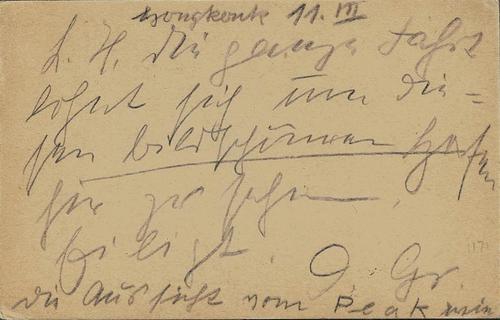 Hongkonk 11. III
L. H. die ganze Fahrt
lohnt sich um die=
sen bildschönen Hafen
hier zu sehen.
D. Gr.
die Aussicht vom Peak